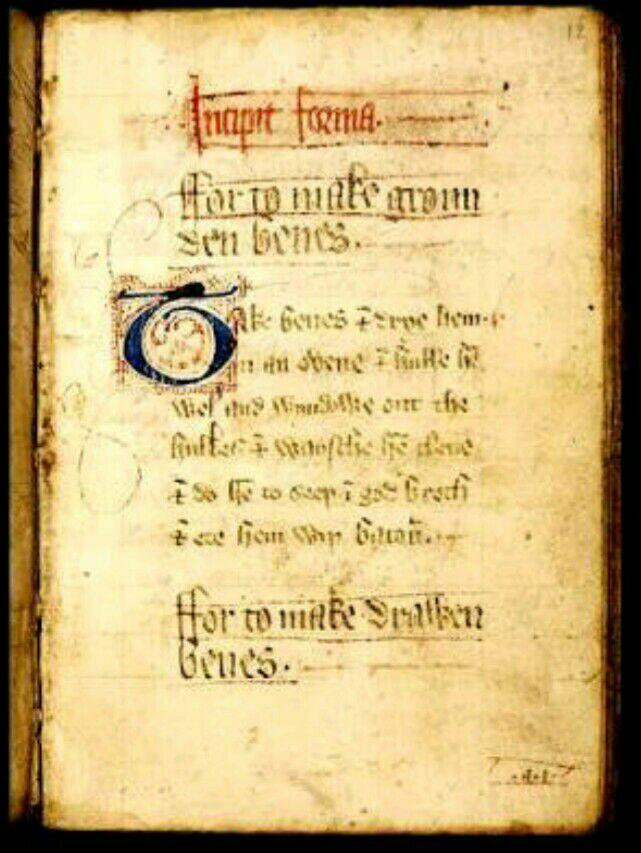 12
Incipit forma.
ffor to make groun
den benes.
Take benes ⁊ drye hem
in an ovene ⁊ hulle hē
wel and wyndewe out the
hulkes ⁊ wayschē hē clene
⁊ do hē to seeþ ī god broth
⁊ ete hem wyþ bacoū.
ffor to make drawen
benes.